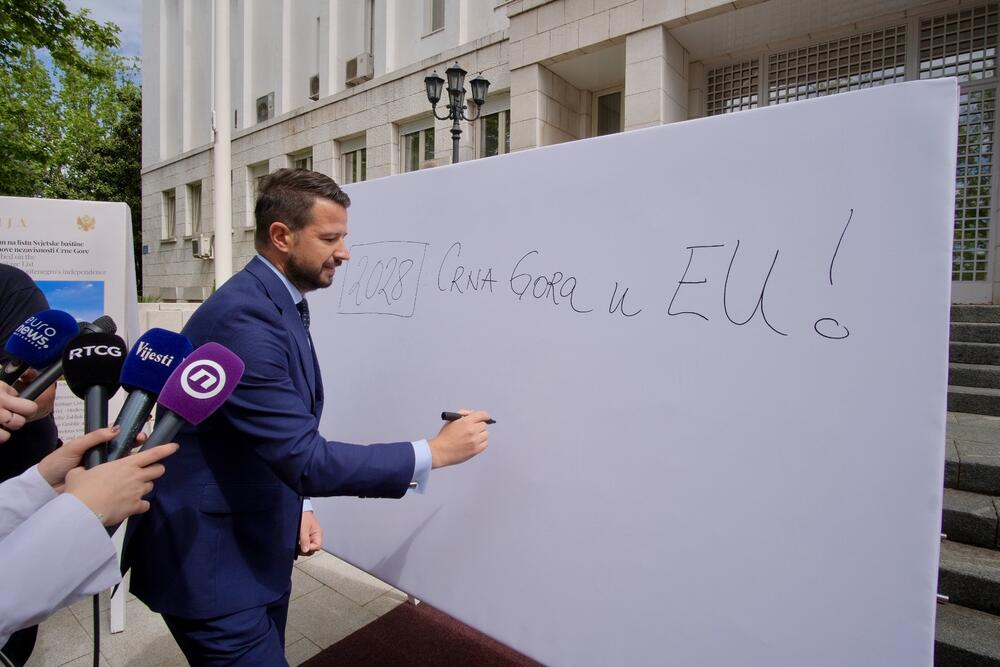 2028 CRNA GORA u EU!
IJA
an na listu Svjetske baštine
nove nezavisnosti Crne Gore
bed on the
age List
ntenegro's independence
euro
news.
RTCG
Vijesti
N